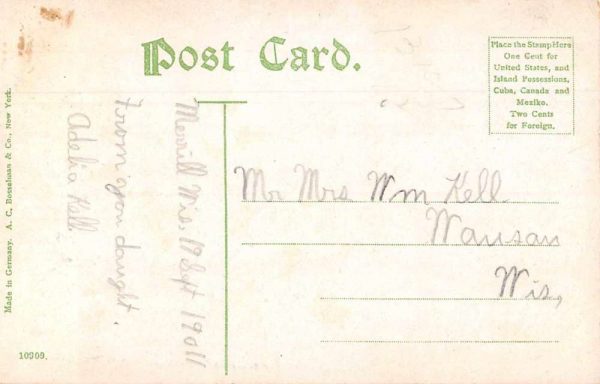 Post Card.
Place the Stamp Here
One Cent for
United States, and
Island Possessions,
Cuba, Canada and
Mexiko.
Two Cents
for Foreign.
Merrill Wis. 19 Sept 19011
From your daught.
Adelia Kell.
Mr Mrs Wm Kell
Wausau
Wis,
Made in Germany. A. C. Bosselman & Co., New York.
10909.